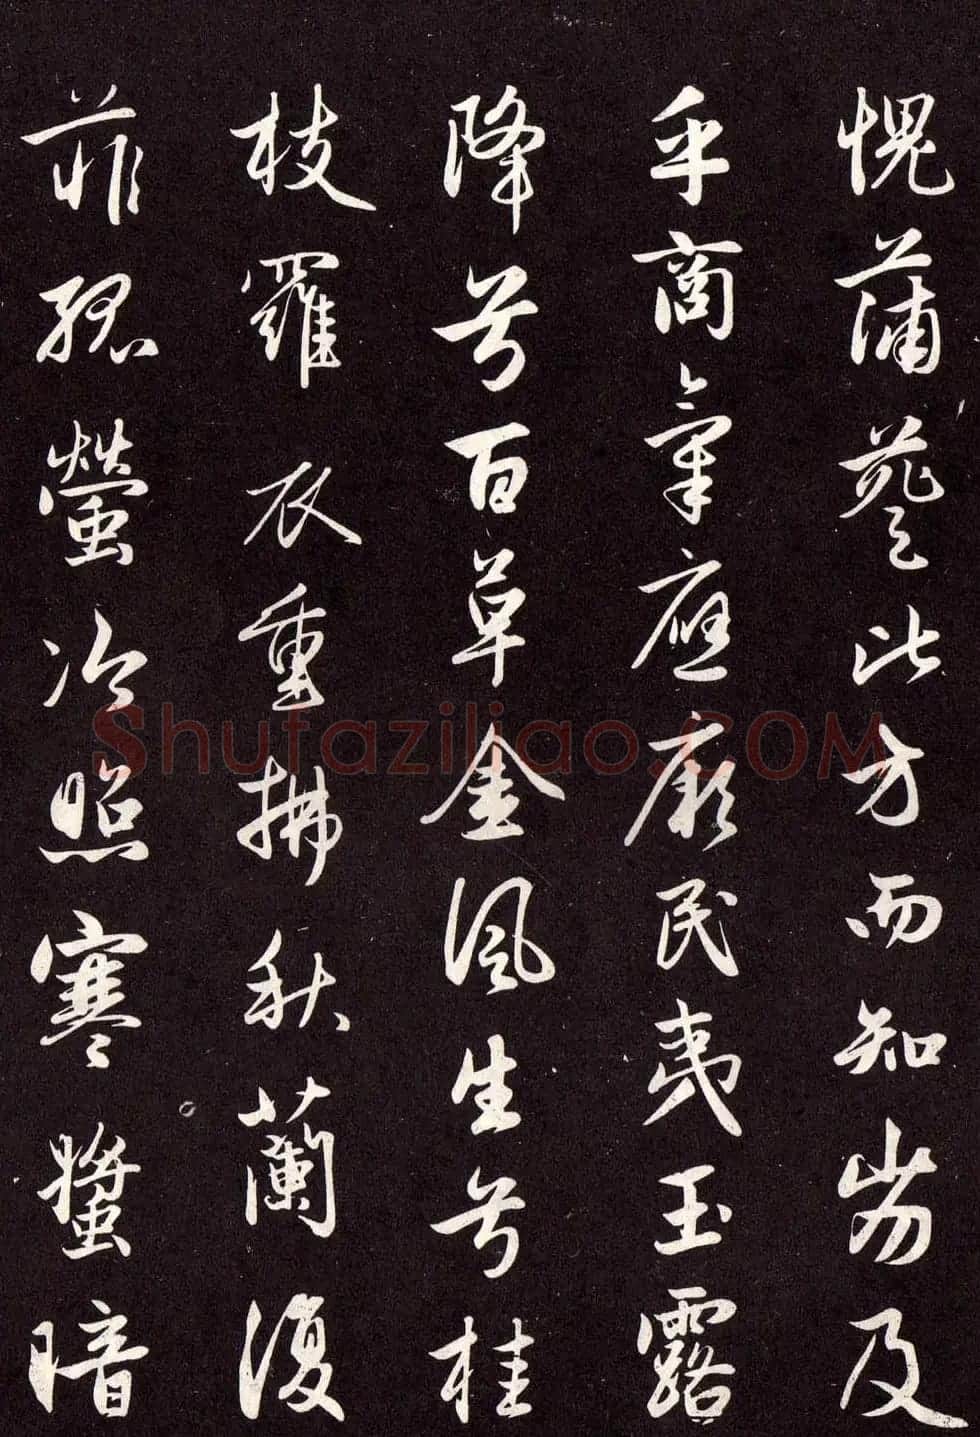 愧蒲葵比方而知劣及
乎商氣應厥民夷玉露
降兮百草金風生兮桂
枝羅衣重拂秋蘭復
菲孤螢冷照寒螿暗
Shufaziliao.COM